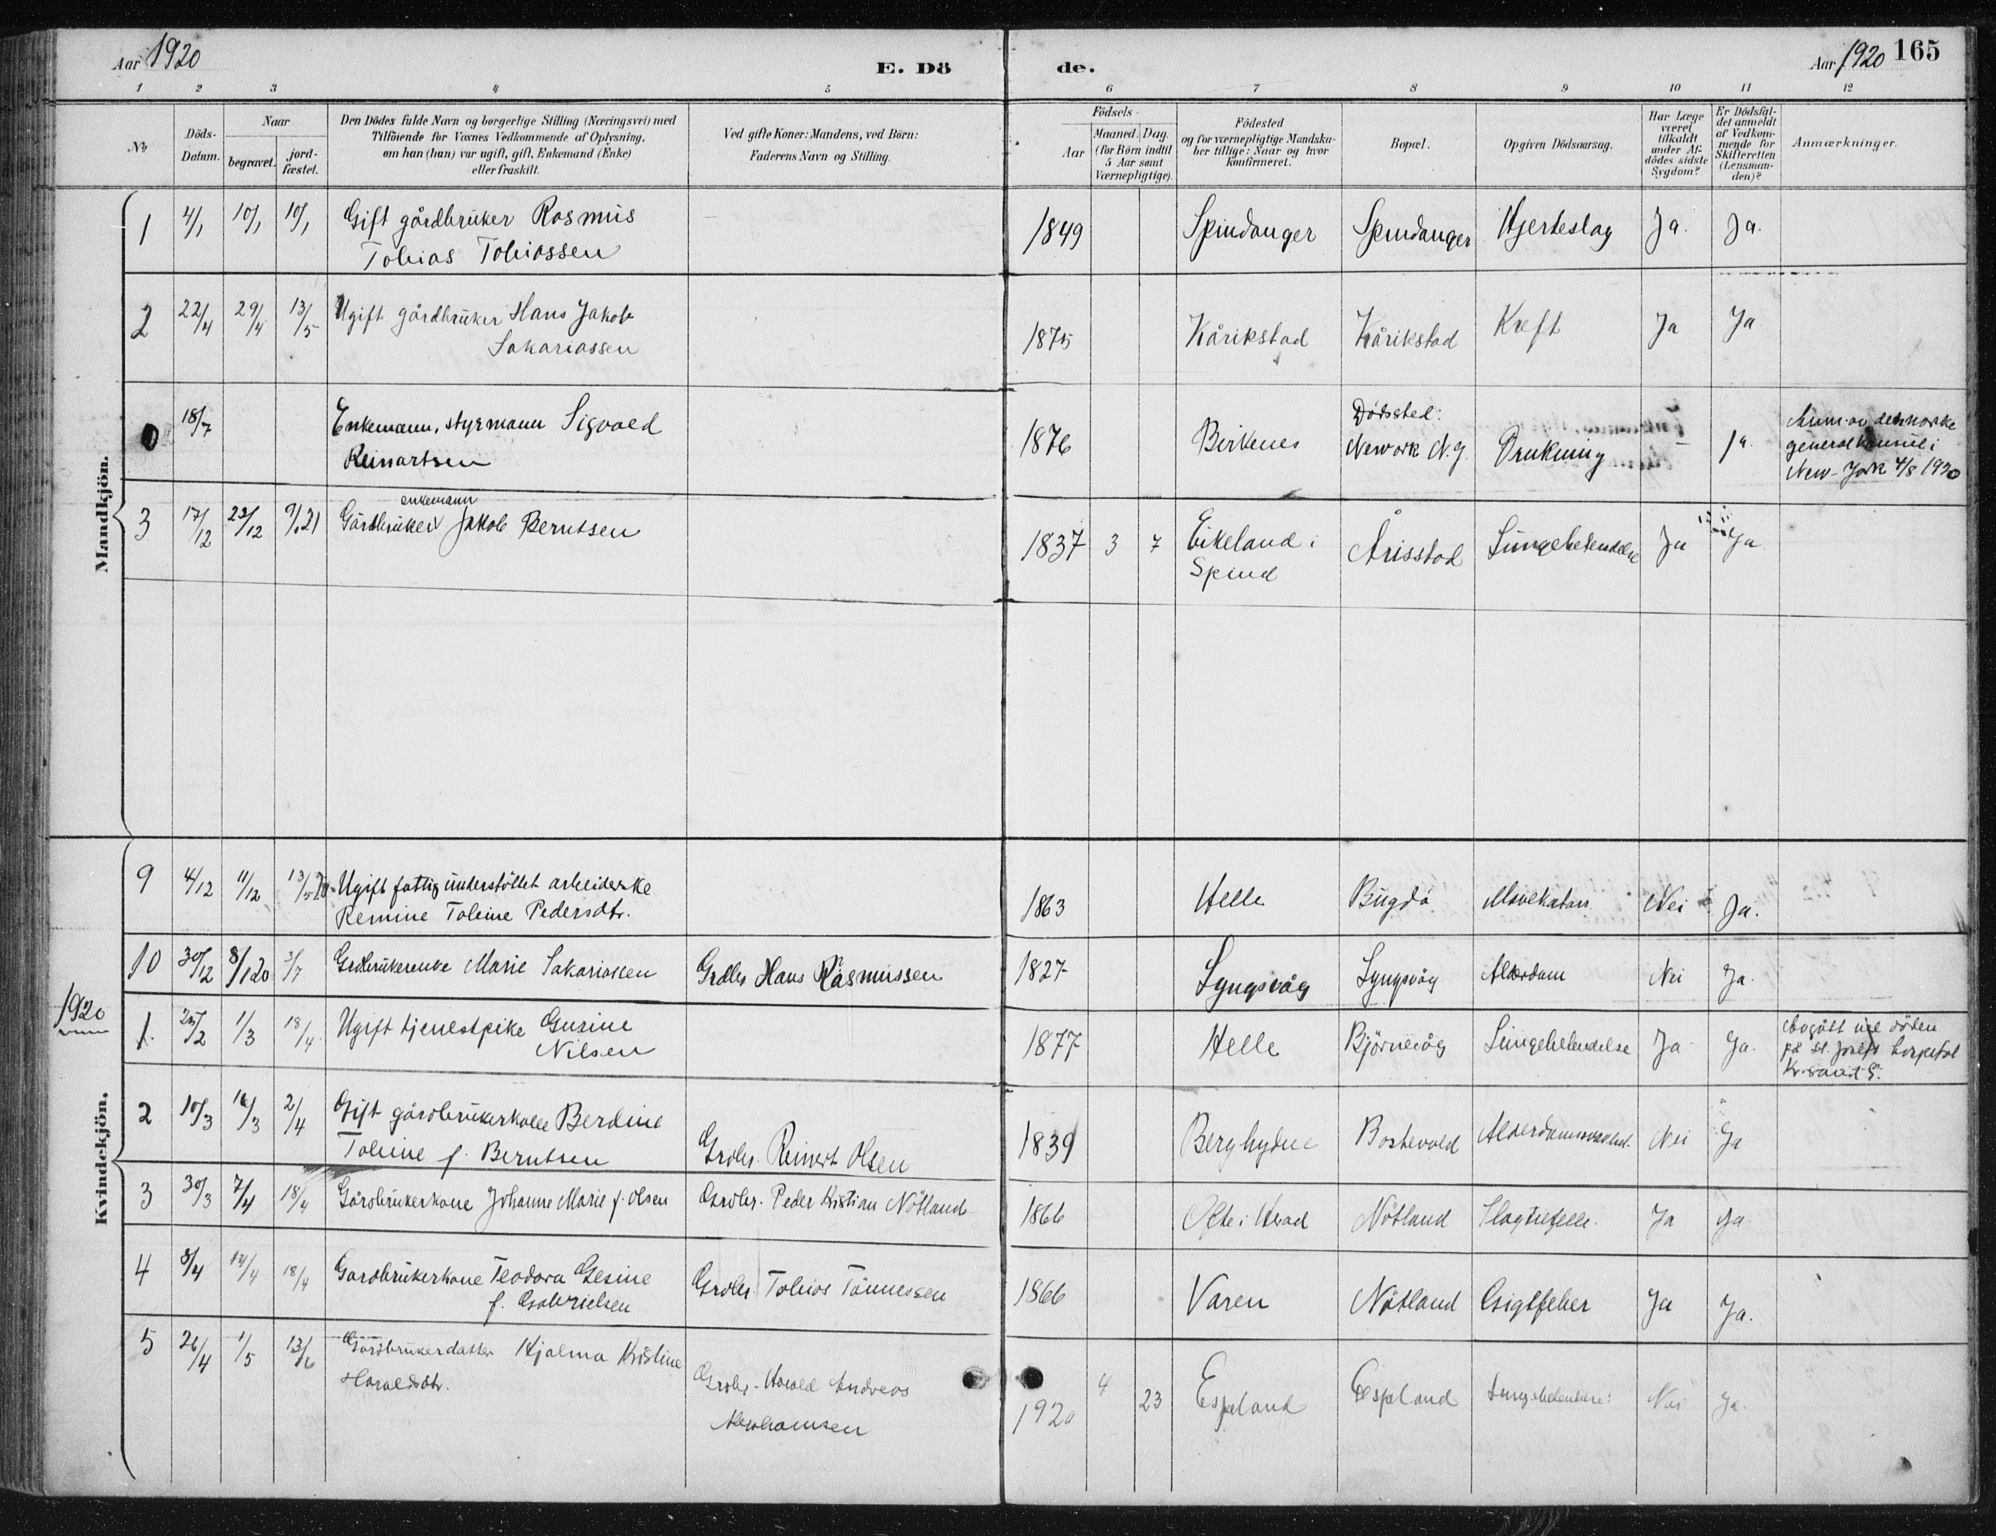 Aar 1920
E. Dö
de.
Aar 1920 165
1 2 3 4 5 6 7 8 9 10 11 12
No
Döds-
Datum.
Naar
begravet.
jord-
fæstet.
Den Dödes fulde Navn og borgerlige Stilling (Næringsvei) med
Tilföiende for Voxnes Vedkommende af Oplysning,
om han (hun) var ugift, gift, Enkemand (Enke)
eller fraskilt.
Ved gifte Koner: Mandens, ved Börn:
Faderens Navn og Stilling.
Födsels-
Aar
Maaned. Dag.
(for Börn indtil
5 Aar samt
Værnepligtige).
Födested
og for værnepligtige Mandska-
ber tillige: Naar og hvor
konfirmeret.
Bopæl.
Opgiven Dödsaarsag.
Har Læge
været
tilkaldt
under Af-
dödes sidste
Sygdom?
Er Dödsfal-
det anmeldt
af Vedkom-
mende for
Skifteretten
(Lensman-
den)?
Anmærkninger.
Mandkjön.
1 4/1 10/1 10/1 Gift gårdbruker Rasmus
Tobias Tobiassen
1849 Spindanger Spindanger Hjerteslag Ja. Ja.
2 22/4 29/4 13/5 Ugift gårdbruker Hans Jakob
Sakariassen
1875 Kårikstad Kårikstad Kreft Ja Ja
0 18/7 Enkemann, styrmann Sigvald
Reinartsen
1876 Birkenes Dødssted:
Nework N.J. Drukning - ja.
Anm. av det norske
generalkonsul i
New-York 4/8 1920
3 17/12 22/12 9/1 21 Gårdbruker enkemann Jakob Berntsen
1837 3 7 Eikeland i
Spind
Årisstad Lungebetendelse Ja Ja
Kvindekjön.
9 4/12 11/12 13/5 20 Ugift fattigunderstöttet arbeiderske
Remine Tobine Pedersdtr.
1863 Helle Bugdö Mavekatar Nei Ja.
10 30/12 8/1 20 3/7 Grdbrukerenke Marie Sakariassen Grdbr Hans Rasmussen
1827 Lyngsvåg Lyngsvåg Alderdom Nei Ja.
1920
1. 25/2 1/3 18/4 Ugift tjenestpike Gurine
Nilsen
1877 Helle Björnevåg Lungebetendelse Ja Ja.
på St. Josefs hospital
Kr.sand S.
2 10/3 16/3 2/4 Gift gårdbrukerkone Berdine
Tobine f. Berntsen
Grdbr. Reinert Olsen
1839 Berghydne Bostevold Nei Ja
3 30/3 7/4 18/4 Gårdbrukerkone Johanne Marie f. Olsen Grdbr. Peder Kristian Nötland
1866 Ofte i Herad Nötland Slagtilfelle. Ja Ja.
4 8/4 14/4 18/4 Gardbrukerkone Teodora Gesine
f. Gabrielsen
Grdbr. Tobias Tönnessen
1866 Varen Nötland Gigtfeber Ja Ja.
5 26/4 1/5 13/6 Gårdbrukerdatter Hjalma Kristine
Haraldsdtr.
Grdbr. Harald Andreas
Abrahamsen
1920 4 23 Espland Espland Lungebetendelse Nei Ja.